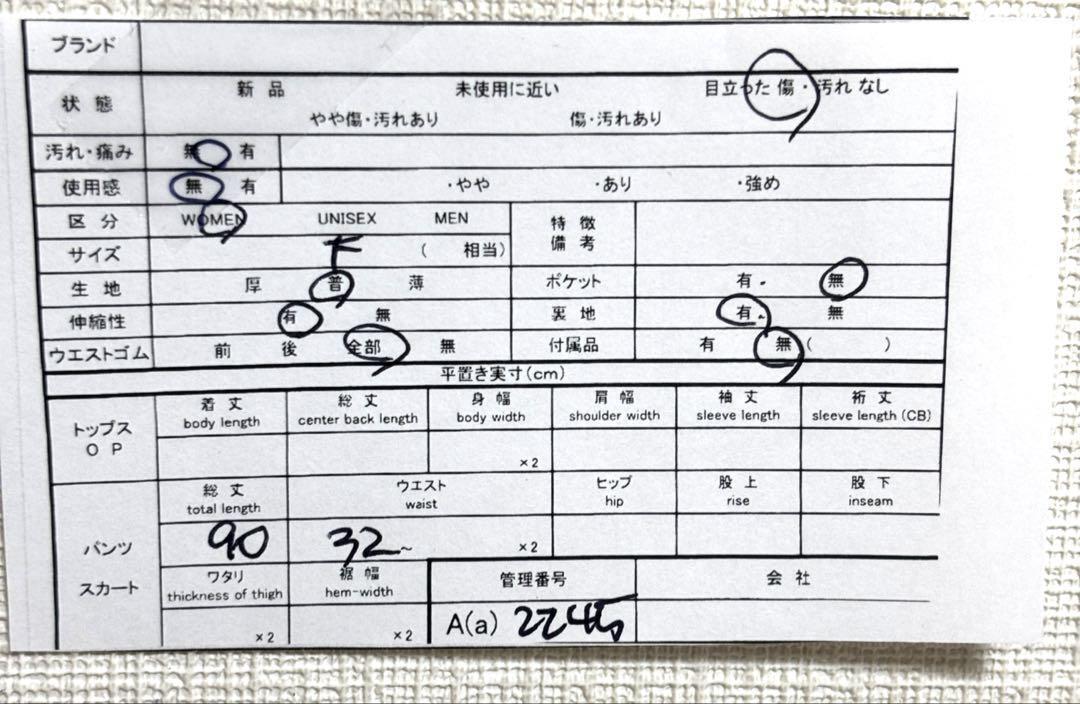 ブランド
状態 新品 未使用に近い 目立った傷・汚れなし
やや傷・汚れあり 傷・汚れあり
汚れ・痛み 無 有
使用感 無 有 ・やや ・あり ・強め
区分 WOMEN UNISEX MEN 特徴
備考
サイズ F ( 相当)
生地 厚 普 薄 ポケット 有・ 無
伸縮性 有 無 裏地 有・ 無
ウエストゴム 前 後 全部 無 付属品 有 無 ( )
平置き実寸(cm)
トップス
OP
着丈 総丈 身幅 肩幅 袖丈 裄丈
body length center back length body width shoulder width sleeve length sleeve length (CB)
×2
パンツ
スカート
総丈 ウエスト ヒップ 股上 股下
total length waist hip rise inseam
90 32~ ×2
ワタリ 裾幅 管理番号 会社
thickness of thigh hem-width
×2 ×2 A(a) 2245